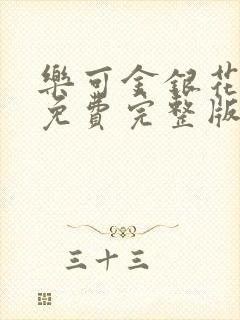 樂可金銀花
免費完整版
三十三